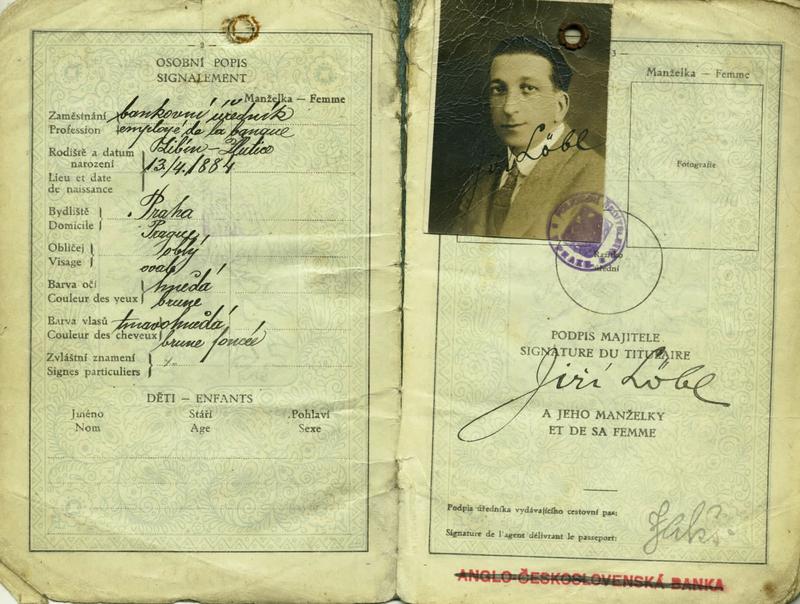 — 2 —
OSOBNÍ POPIS
SIGNALEMENT
Manželka — Femme
Zaměstnání bankovní úředník
Profession employé de la banque
Rodiště a datum narození Libín - Žlutice
13/4. 1884
Lieu et date de naissance
Bydliště Praha
Domicile Prague
Obličej oblý
Visage oval
Barva očí hnědá
Couleur des yeux brune
Barva vlasů tmavohnědá
Couleur des cheveux brune foncée
Zvláštní znamení
Signes particuliers
DĚTI — ENFANTS
Jméno Stáří Pohlaví
Nom Age Sexe
3 —
Manželka — Femme
Fotografie
Jiří Löbl
Razítko
úřední
PODPIS MAJITELE
SIGNATURE DU TITULAIRE
Jiří Löbl
A JEHO MANŽELKY
ET DE SA FEMME
Podpis úředníka vydávajícího cestovní pas:
Signature de l'agent délivrant le passeport:
ANGLO-ČESKOSLOVENSKÁ BANKA